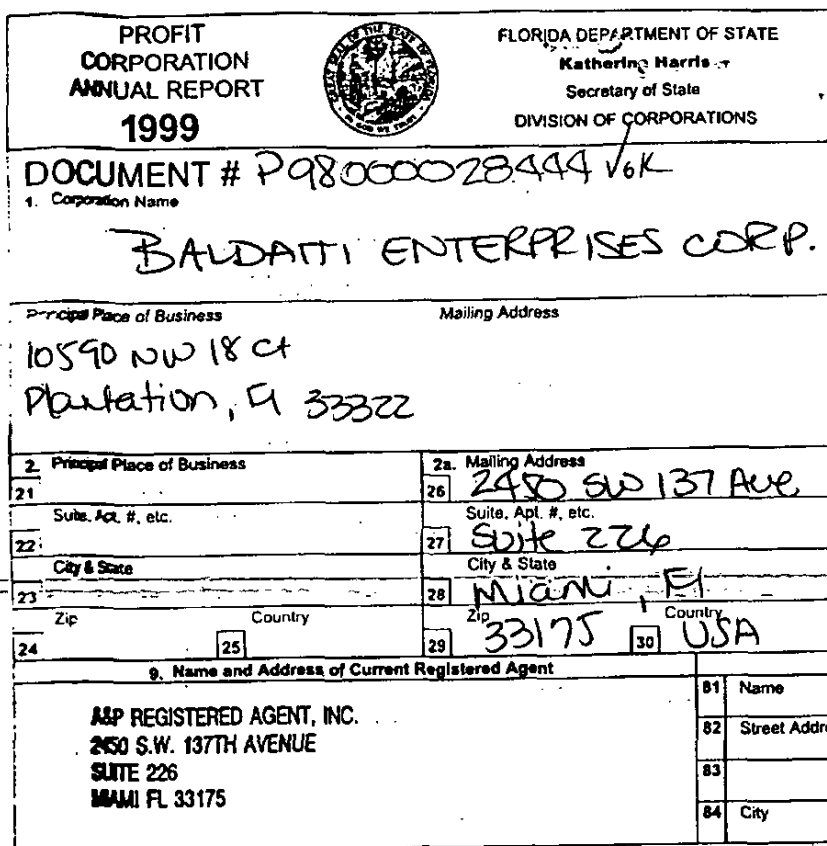 PROFIT
CORPORATION
ANNUAL REPORT
1999
FLORIDA DEPARTMENT OF STATE
Katherine Harris
Secretary of State
DIVISION OF CORPORATIONS
DOCUMENT # P98000028444
1. Corporation Name
BALDATTI ENTERPRISES CORP.
Principal Place of Business
Mailing Address
10590 NW 18 Ct
Plantation, Fl 33322
2. Principal Place of Business
2a. Mailing Address
21
26 2450 SW 137 Ave
Suite, Apt. #, etc.
Suite, Apt. #, etc.
22
27 Suite 226
City & State
City & State
23
28 Miami, Fl
Zip
Country
Zip
Country
24
25
29 33175
30 USA
9. Name and Address of Current Registered Agent
A&P REGISTERED AGENT, INC.
2450 S.W. 137TH AVENUE
SUITE 226
MIAMI FL 33175
81 Name
82 Street Addre
83
84 City